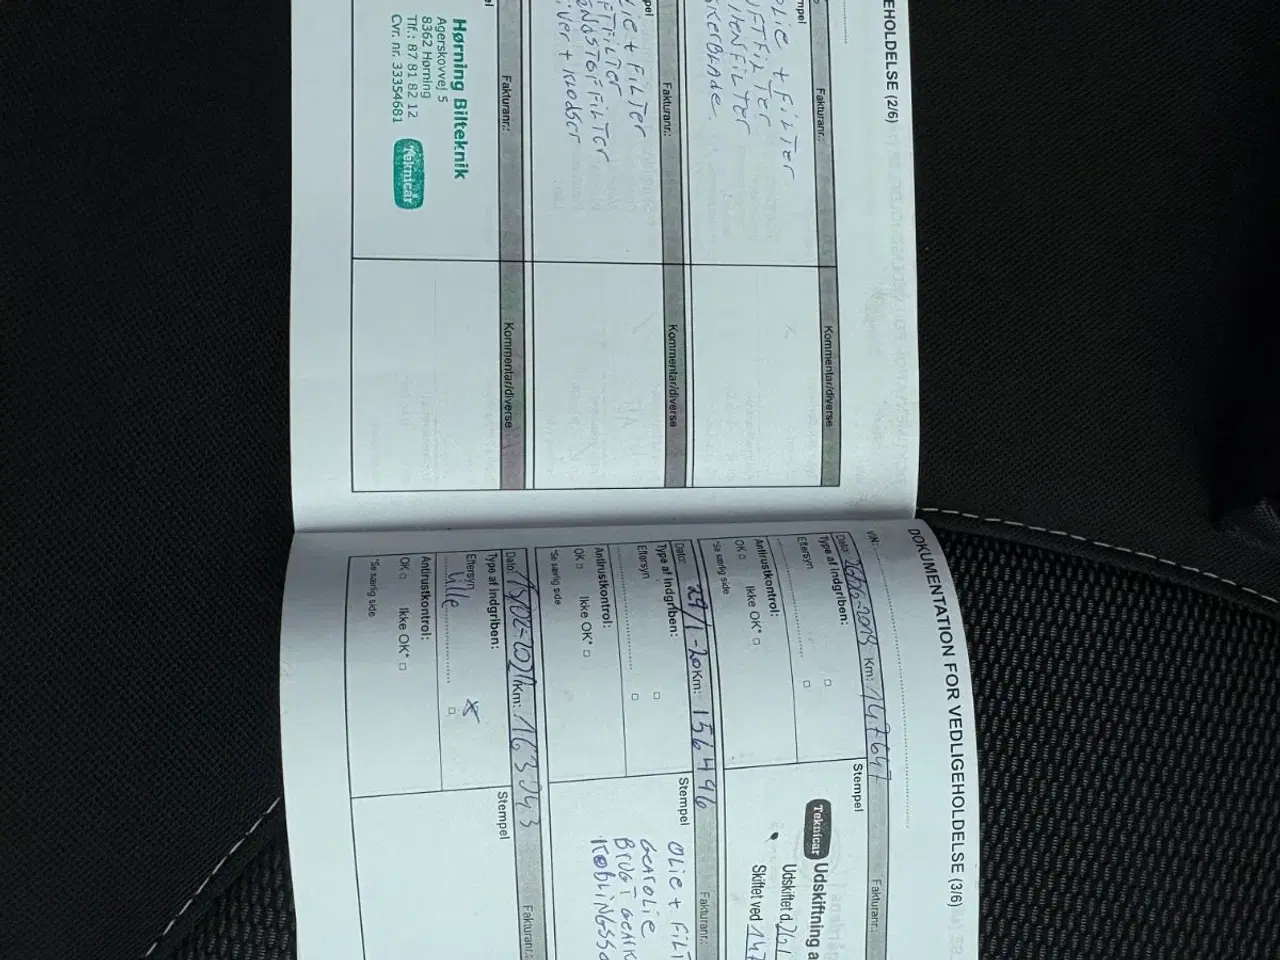 EHOLDELSE (2/6)
Fakturanr.:
Kommentar/diverse
OLIE + FILTER
LUFTFILTER
Fakturanr.:
Kommentar/diverse
OLIE + FILTER
LUFTFILTER
BRÆNDSTOFFILTER
Fakturanr.:
Kommentar/diverse
Hørning Bilteknik
Agerskovvej 5
8362 Hørning
Tlf.: 87 81 82 12
Cvr. nr. 33354681
Teknicar
DOKUMENTATION FOR VEDLIGEHOLDELSE (3/6)
VIN:
Dato: Km: 147647
Stempel
Fakturanr.:
Type af indgriben:
Eftersyn
Antirustkontrol:
OK Ikke OK*
*Se særlig side
Teknicar Udskiftning a
Udskiftet d. 26/
Skiftet ved 147
Dato: 29/1-20 Km: 156496
Stempel
Fakturanr.:
Type af indgriben:
Eftersyn
Antirustkontrol:
OK Ikke OK*
*Se særlig side
OLIE + FILT
GEAROLIE
BRUGT GEARK
Dato: 15/02-2021 Km: 163043
Stempel
Fakturanr.:
Type af indgriben:
Eftersyn
Lille
Antirustkontrol:
OK Ikke OK*
*Se særlig side